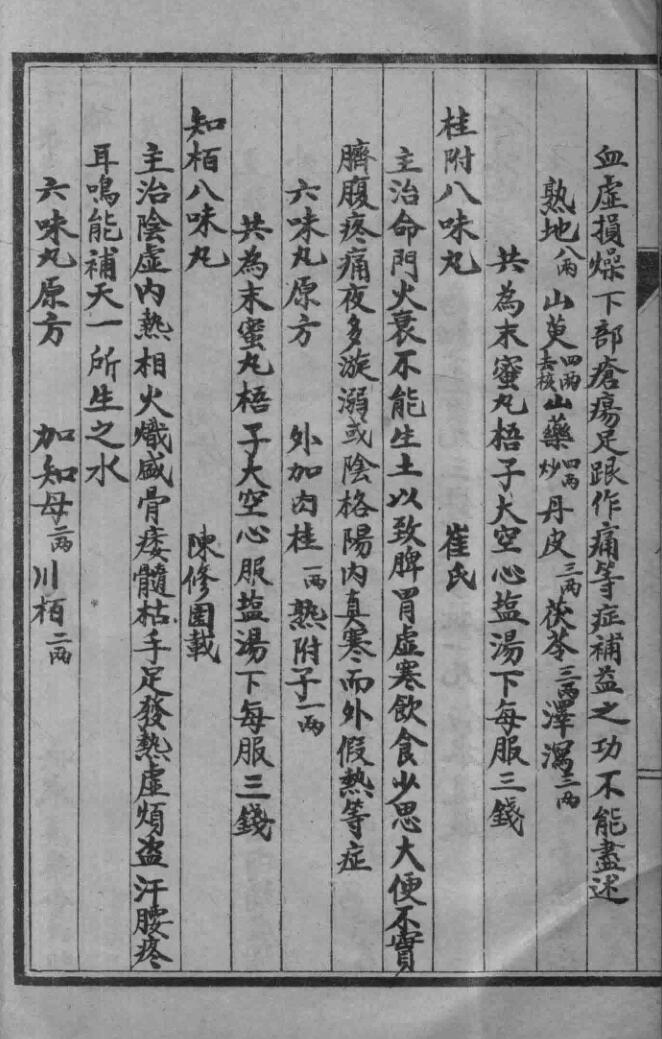 血虛損燥下部瘡瘍足跟作痛等症補益之功不能盡述
熟地八兩山萸四兩去核山藥四兩炒丹皮三兩茯苓三兩澤瀉三兩
共為末蜜丸梧子大空心盐湯下每服三錢
桂附八味丸 崔氏
主治命門火衰不能生土以致脾胃虛寒飲食少思大便不實
臍腹疼痛夜多漩溺或陰格陽內真寒而外假熱等症
六味丸原方 外加肉桂一兩熟附子一兩
共為末蜜丸梧子大空心服盐湯下每服三錢
知柏八味丸 陳修園載
主治陰虛內熱相火熾盛骨痿髓枯手足發熱虛煩盗汗腰疼
耳鳴能補天一所生之水
六味丸原方 加知母二兩川柏二兩